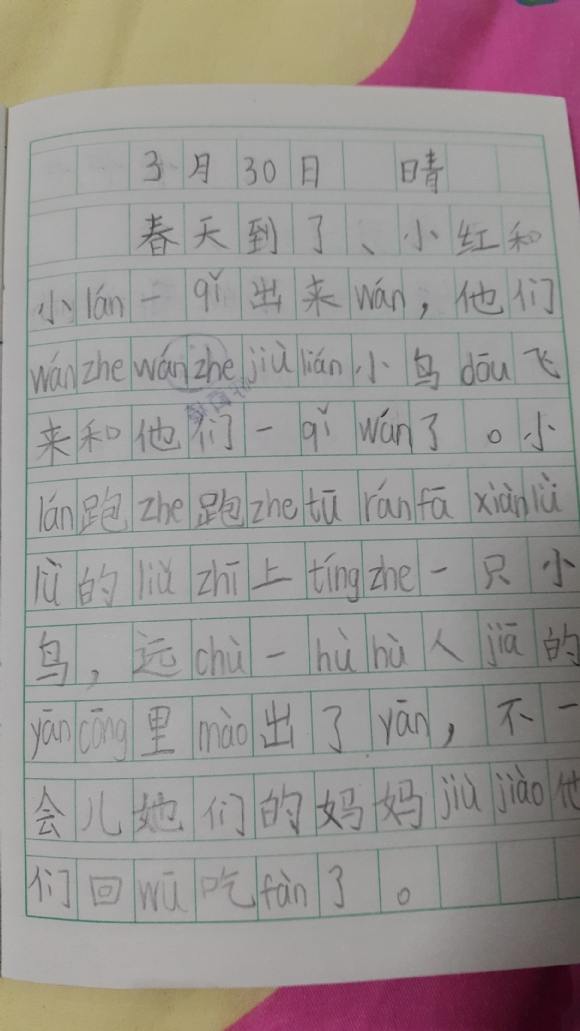 3月30日 晴
春天到了、小红和
小lán一qǐ出来wán，他们
wánzhewánzhejiùlián小鸟dōu飞
来和他们一qǐwán了。小
lán跑zhe跑zhetūránfāxiànlǜ
lǜ的liǔzhī上tíngzhe一只小
鸟，远chù一hùhù人jiā的
yāncōng里mào出了yān，不一
会儿她们的妈妈jiùjiào他
们回wū吃fàn了。